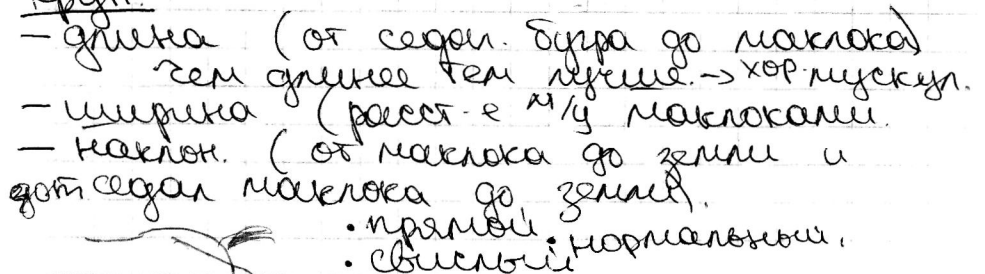 Круп.
– длина (от седал. бугра до маклока)
чем длиннее тем лучше. → хор. мускул.
– ширина (расст-е м/у маклоками.
– наклон. (от маклока до земли и
от седал маклока до земли).
• прямой • нормальный.
• свислый